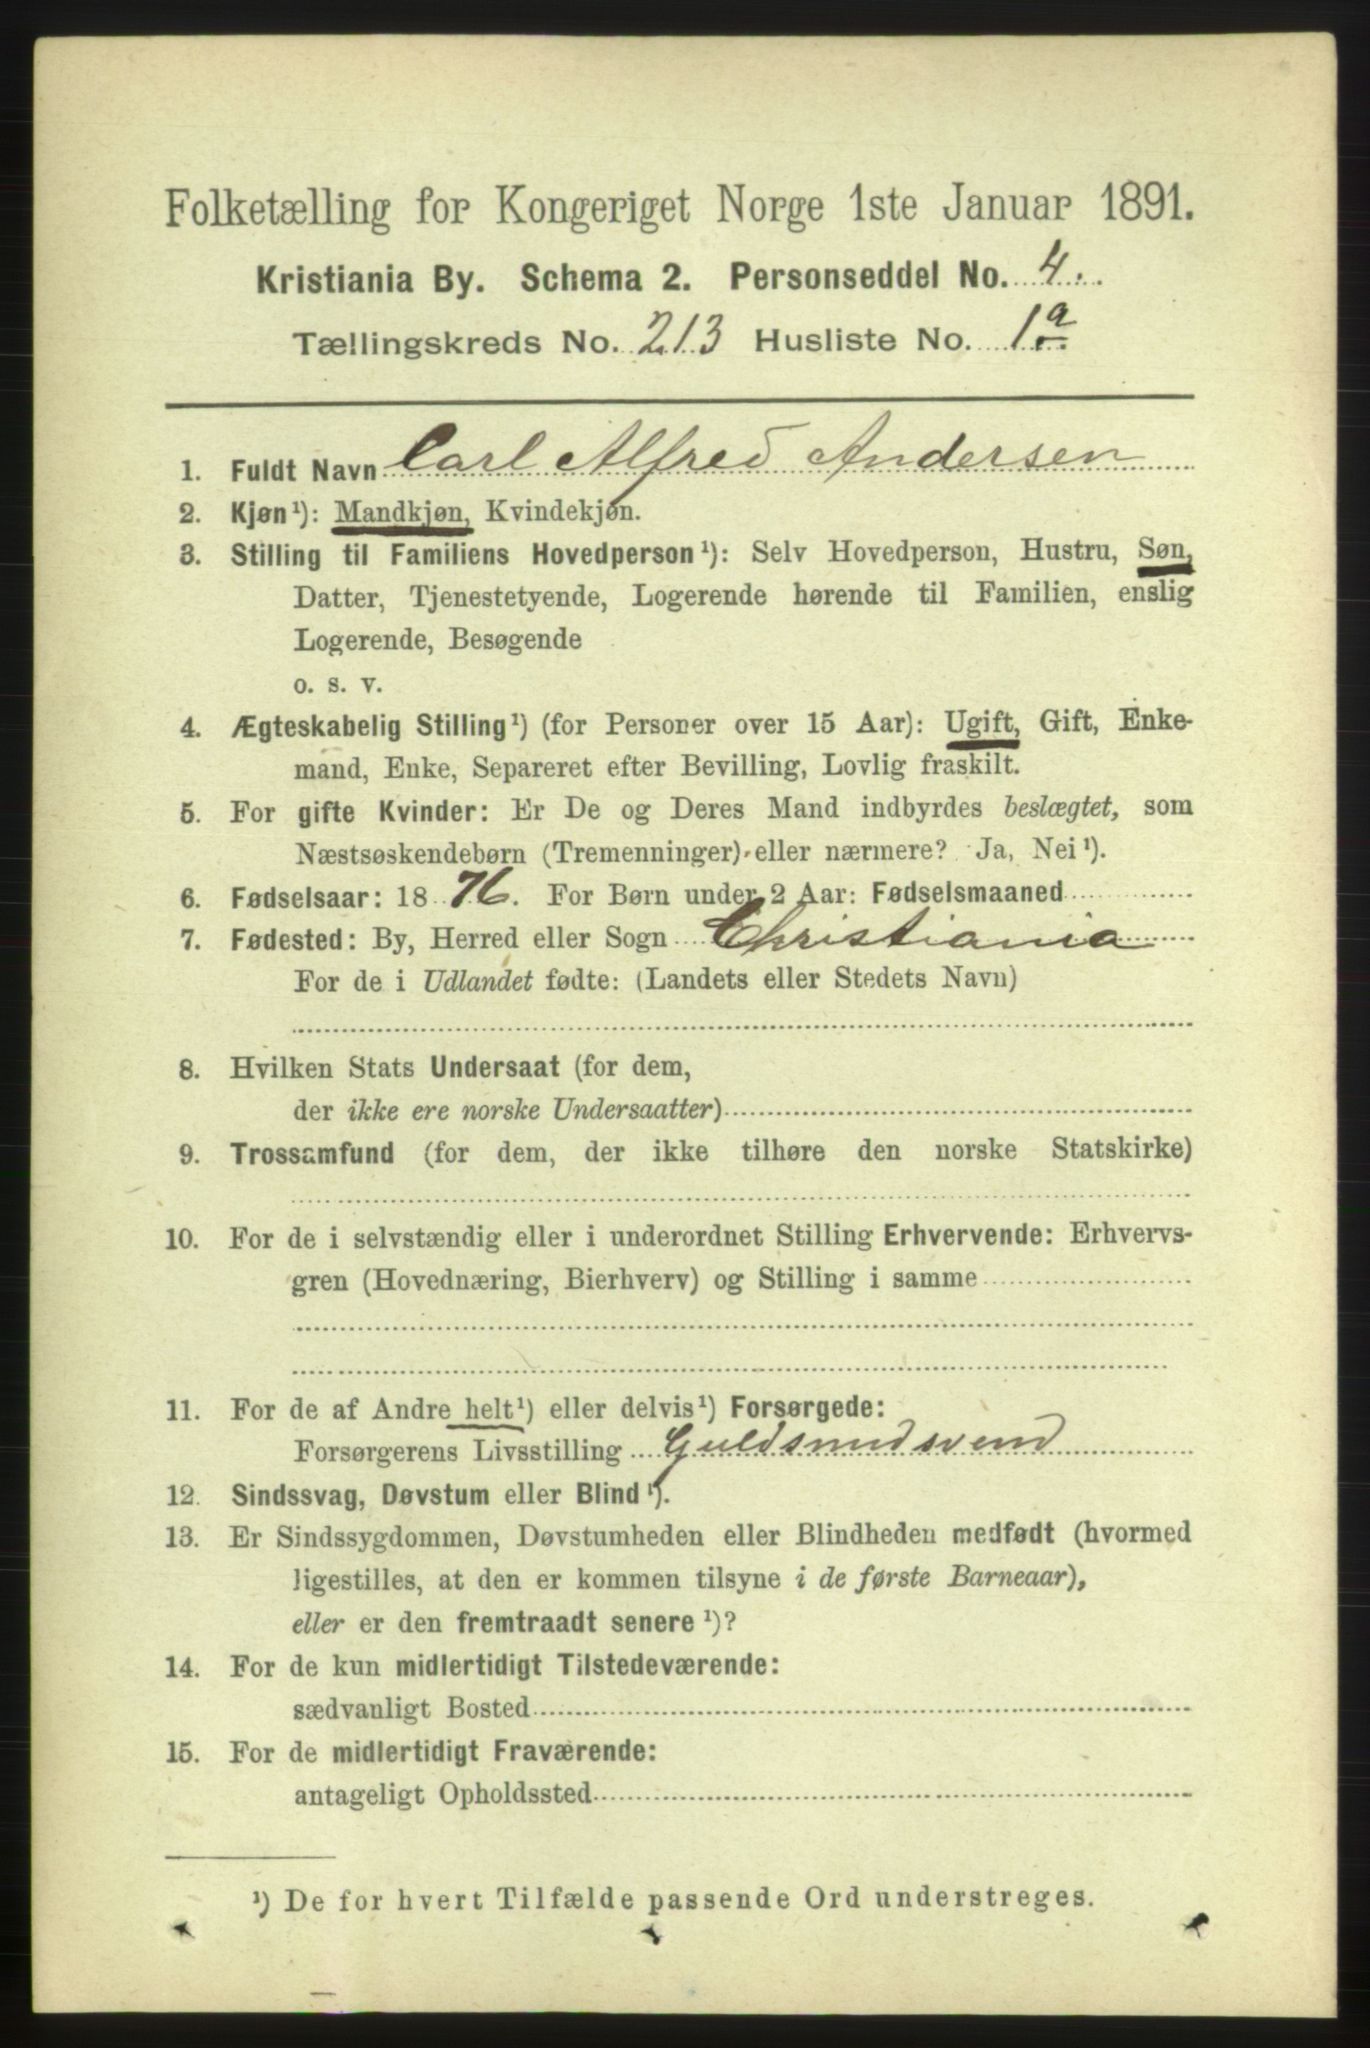 Folketælling for Kongeriget Norge 1ste Januar 1891.
Kristiania By. Schema 2. Personseddel No. 4.
Tællingskreds No. 213 Husliste No. 1a
1. Fuldt Navn Carl Alfred Andersen
2. Kjøn¹): Mandkjøn, Kvindekjøn.
3. Stilling til Familiens Hovedperson¹): Selv Hovedperson, Hustru, Søn,
Datter, Tjenestetyende, Logerende hørende til Familien, enslig
Logerende, Besøgende
o. s. v.
4. Ægteskabelig Stilling¹) (for Personer over 15 Aar): Ugift, Gift, Enke-
mand, Enke, Separeret efter Bevilling, Lovlig fraskilt.
5. For gifte Kvinder: Er De og Deres Mand indbyrdes beslægtet, som
Næstsøskendebørn (Tremenninger) eller nærmere? Ja, Nei¹).
6. Fødselsaar: 1876. For Børn under 2 Aar: Fødselsmaaned
7. Fødested: By, Herred eller Sogn Christiania
For de i Udlandet fødte: (Landets eller Stedets Navn)
8. Hvilken Stats Undersaat (for dem,
der ikke ere norske Undersaatter)
9. Trossamfund (for dem, der ikke tilhøre den norske Statskirke)
10. For de i selvstændig eller i underordnet Stilling Erhvervende: Erhvervs-
gren (Hovednæring, Bierhverv) og Stilling i samme
11. For de af Andre helt¹) eller delvis¹) Forsørgede:
Forsørgerens Livsstilling Guldsmedsvend
12. Sindssvag, Døvstum eller Blind¹).
13. Er Sindssygdommen, Døvstumheden eller Blindheden medfødt (hvormed
ligestilles, at den er kommen tilsyne i de første Barneaar),
eller er den fremtraadt senere¹)?
14. For de kun midlertidigt Tilstedeværende:
sædvanligt Bosted
15. For de midlertidigt Fraværende:
antageligt Opholdssted
¹) De for hvert Tilfælde passende Ord understreges.